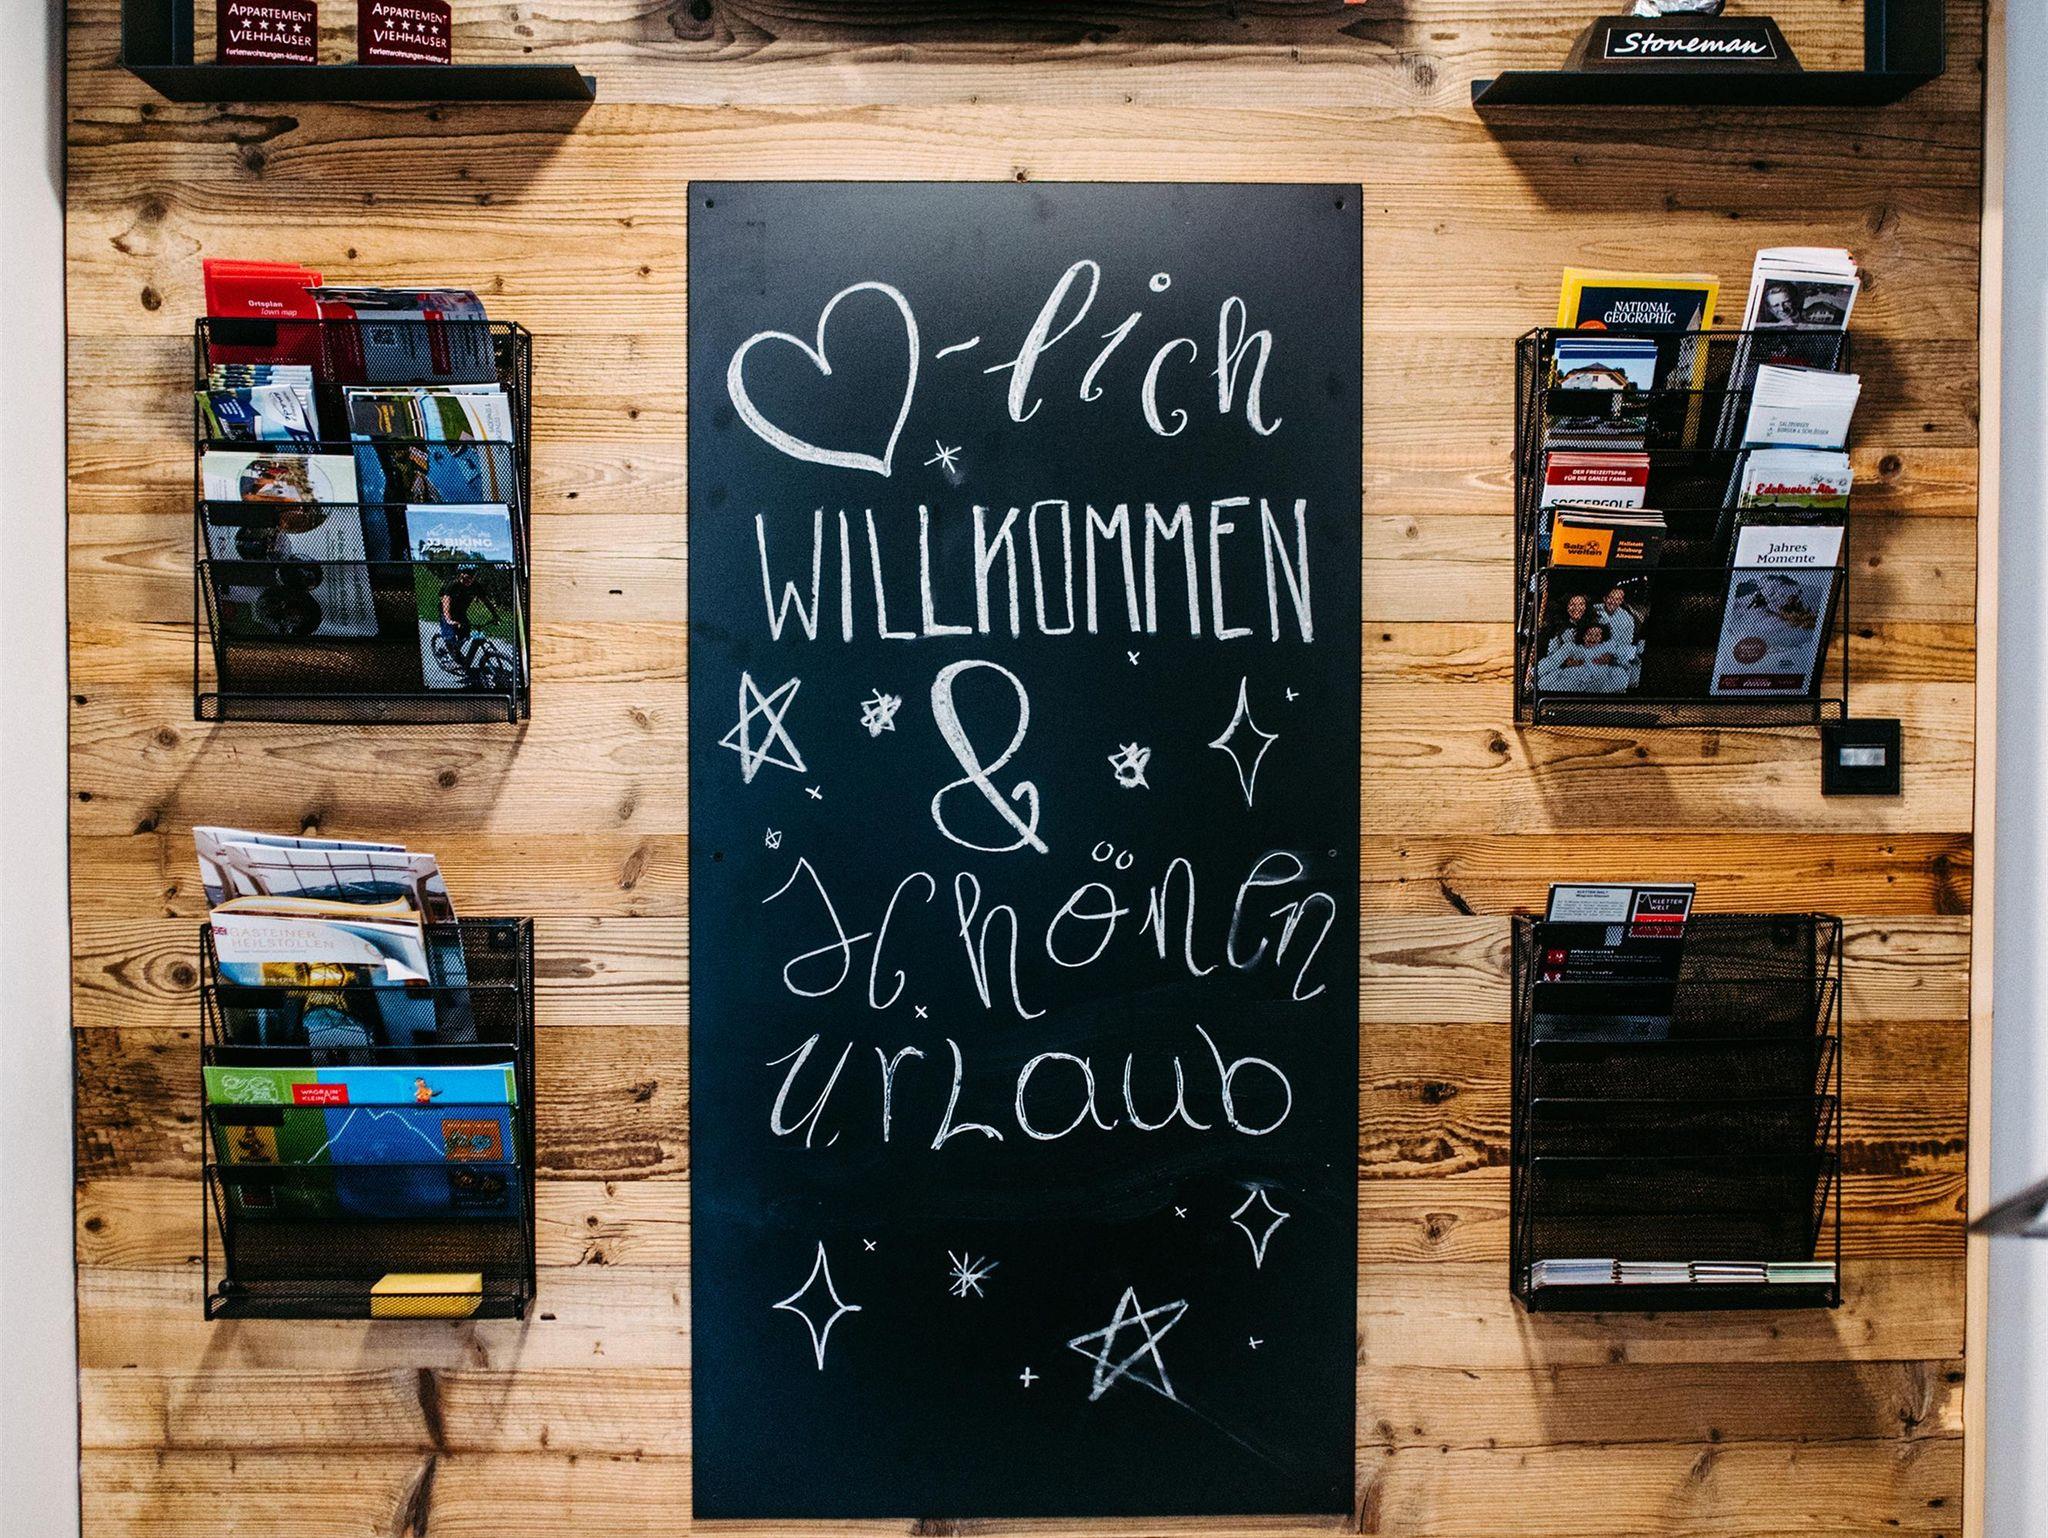 APPARTEMENT
VIEHHAUSER
ferienwohnungen-kleinarl.at
APPARTEMENT
VIEHHAUSER
ferienwohnungen-kleinarl.at
Stoneman
Ortsplan
Town map
♡-lich
WILLKOMMEN
&
schönen
urlaub
NATIONAL
GEOGRAPHIC
SALZBURGER
BURGEN & SCHLÖSSER
DER FREIZEITSPAß
FÜR DIE GANZE FAMILIE
SOCCERGOLF
Edelweiss-Alm
Salz
welten
Hallstatt
Salzburg
Altaussee
Jahres
Momente
BIKING
GASTEINER
HEILSTOLLEN
WAGRAIN
KLEINARL
KLETTER
WELT